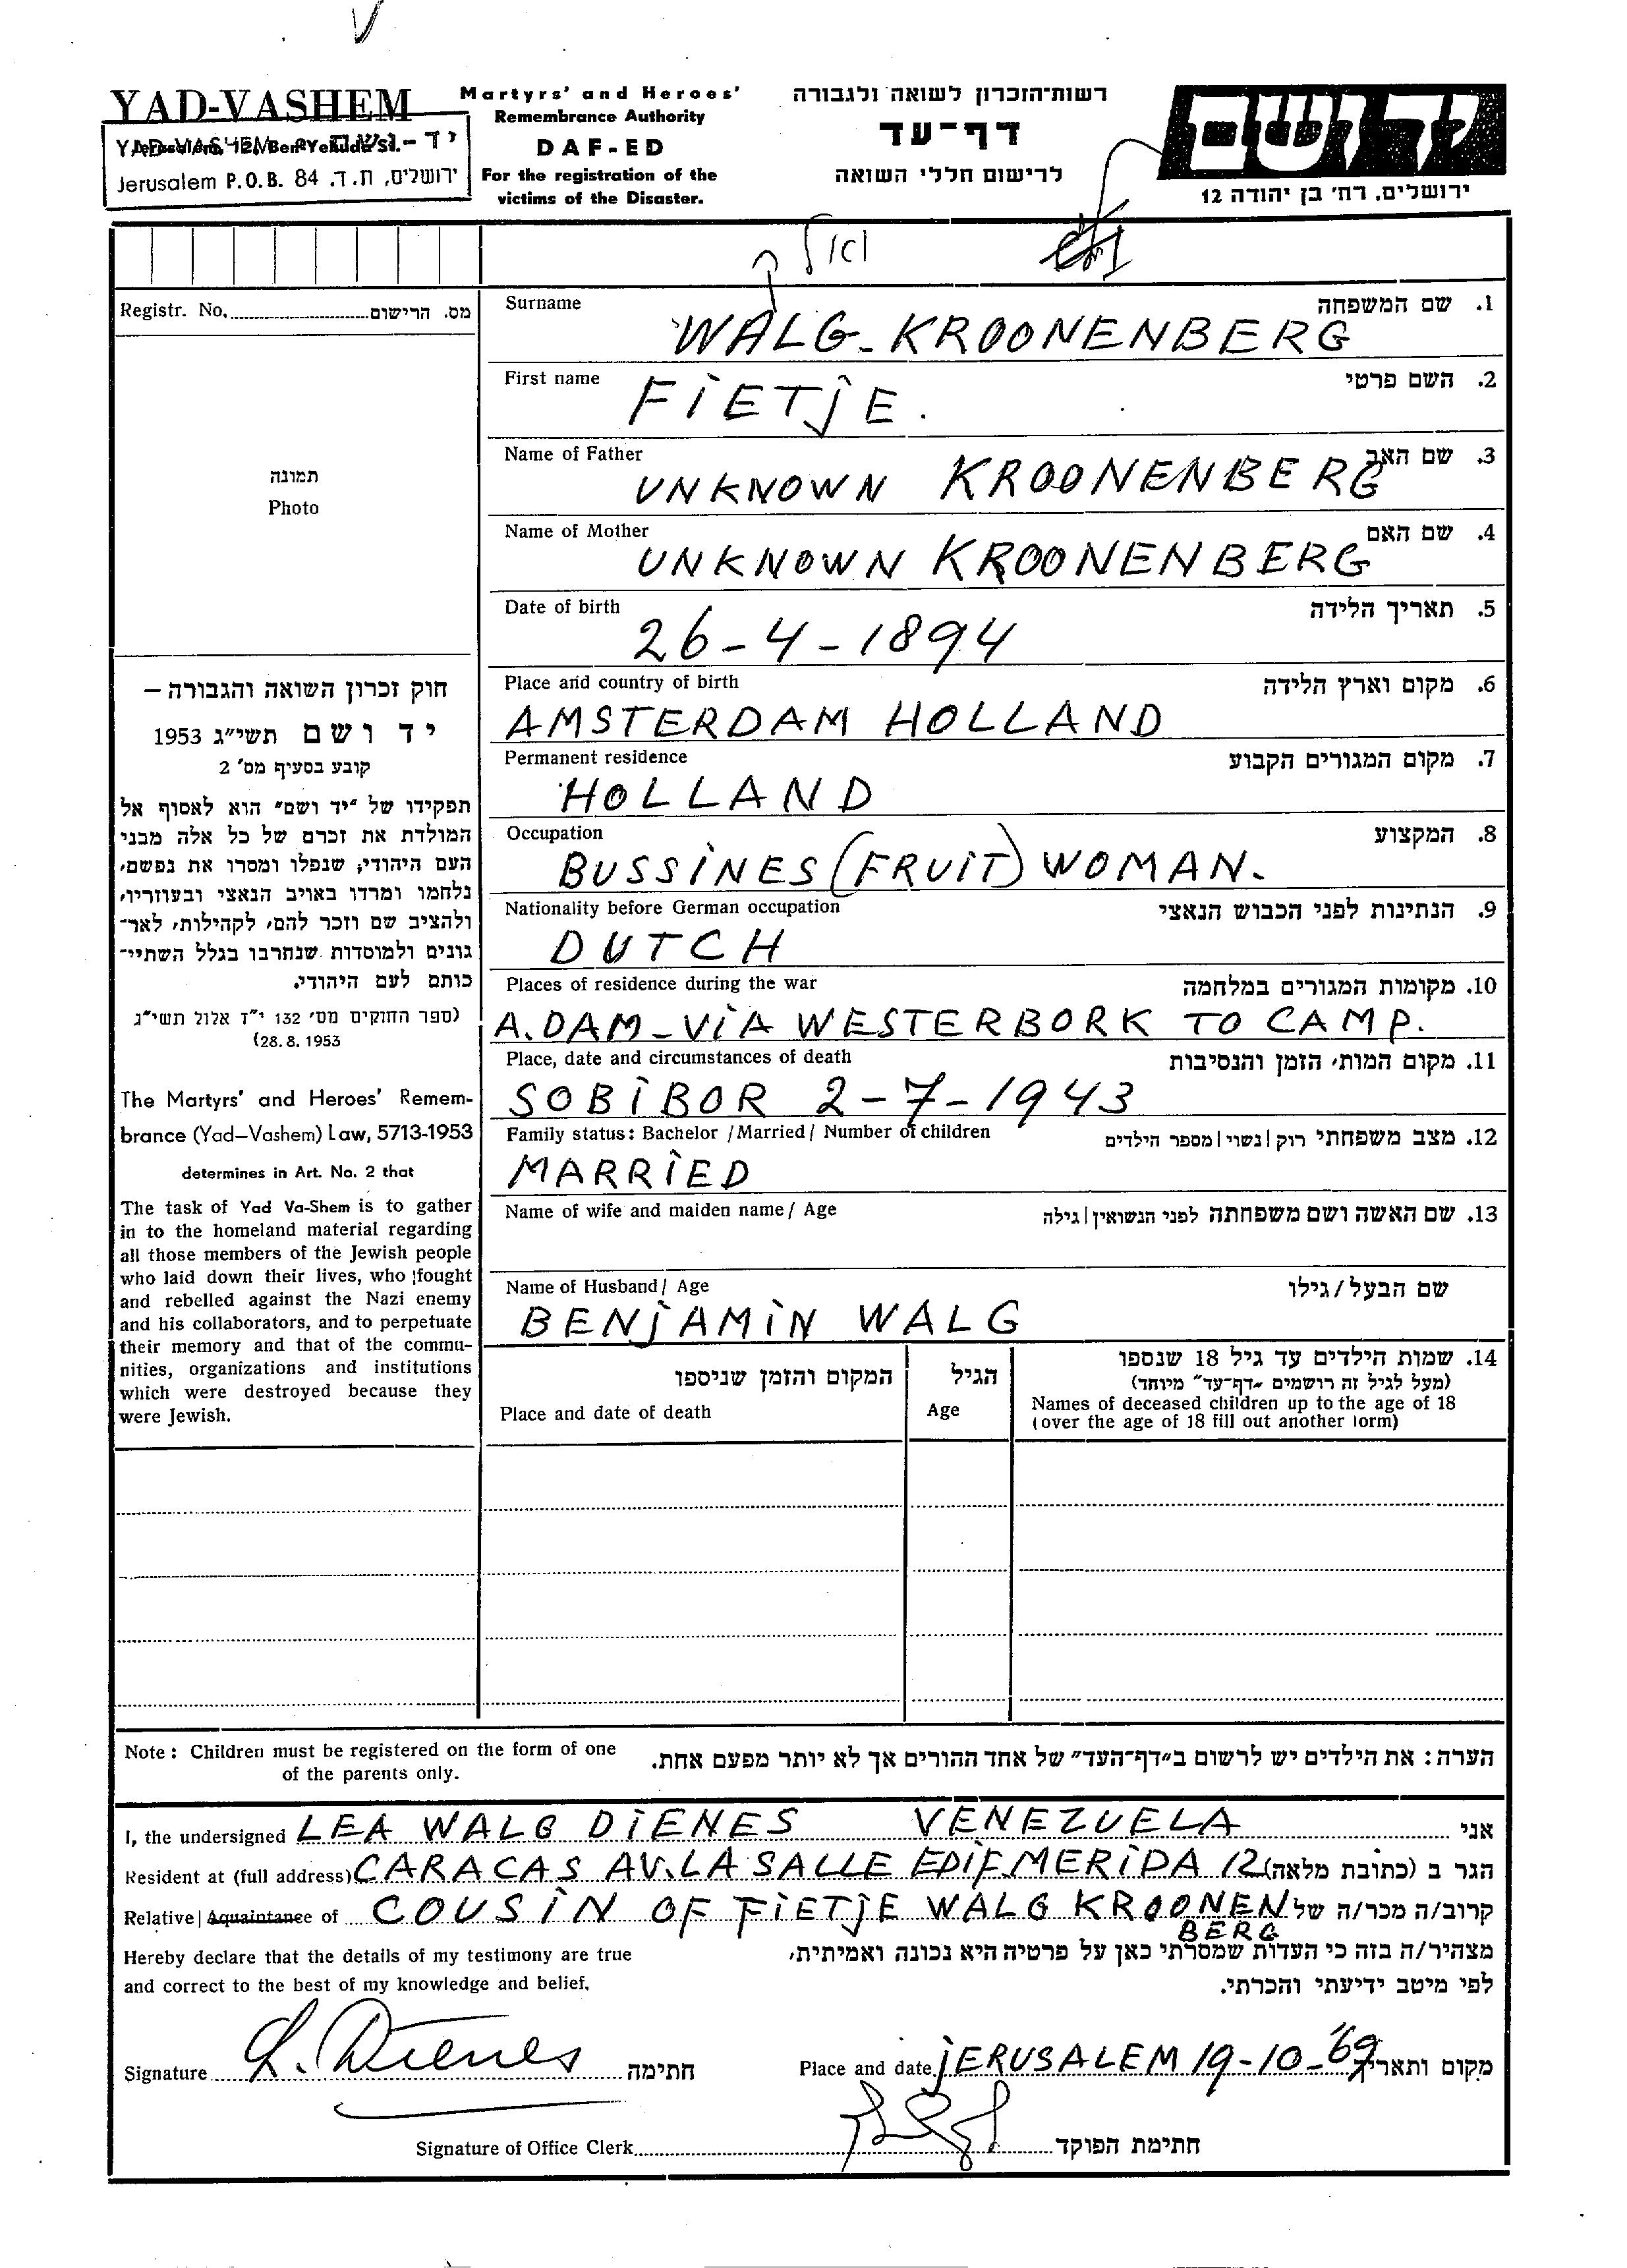 YAD-VASHEM
YAD-VASHEM יד-ושם
Jerusalem P.O.B. 84 .ירושלים, ת.ד
Martyrs' and Heroes'
Remembrance Authority
DAF-ED
For the registration of the
victims of the Disaster.
רשות־הזכרון לשואה ולגבורה
דף־עד
לרישום חללי השואה
יד ושם
ירושלים, רח' בן יהודה 12
Registr. No. מס. הרישום
תמונה
Photo
חוק זכרון השואה והגבורה –
יד ושם תשי״ג 1953
קובע בסעיף מס' 2
תפקידו של ״יד ושם״ הוא לאסוף אל
המולדת את זכרם של כל אלה מבני
העם היהודי, שנפלו ומסרו את נפשם,
נלחמו ומרדו באויב הנאצי ובעוזריו,
ולהציב שם וזכר להם, לקהילות, לאר־
גונים ולמוסדות שנחרבו בגלל השתיי־
כותם לעם היהודי.
(ספר החוקים מס' 132 י״ז אלול תשי״ג
(28.8.1953
The Martyrs' and Heroes' Remem-
brance (Yad–Vashem) Law, 5713-1953
determines in Art. No. 2 that
The task of Yad Va-Shem is to gather
in to the homeland material regarding
all those members of the Jewish people
who laid down their lives, who fought
and rebelled against the Nazi enemy
and his collaborators, and to perpetuate
their memory and that of the commu-
nities, organizations and institutions
which were destroyed because they
were Jewish.
Surname 1. שם המשפחה
WALG-KROONENBERG
First name 2. השם פרטי
FIETJE.
Name of Father 3. שם האב
UNKNOWN KROONENBERG
Name of Mother 4. שם האם
UNKNOWN KROONENBERG
Date of birth 5. תאריך הלידה
26-4-1894
Place and country of birth 6. מקום וארץ הלידה
AMSTERDAM HOLLAND
Permanent residence 7. מקום המגורים הקבוע
HOLLAND
Occupation 8. המקצוע
BUSSINES (FRUIT) WOMAN.
Nationality before German occupation 9. הנתינות לפני הכבוש הנאצי
DUTCH
Places of residence during the war 10. מקומות המגורים במלחמה
A.DAM-VIA WESTERBORK TO CAMP.
Place, date and circumstances of death 11. מקום המות, הזמן והנסיבות
SOBIBOR 2-7-1943
Family status: Bachelor / Married / Number of children 12. מצב משפחתי רוק | נשוי | מספר הילדים
MARRIED
Name of wife and maiden name / Age 13. שם האשה ושם משפחתה לפני הנשואין | גילה
Name of Husband / Age שם הבעל / גילו
BENJAMIN WALG
14. שמות הילדים עד גיל 18 שנספו
(מעל לגיל זה רושמים ״דף־עד״ מיוחד)
Names of deceased children up to the age of 18
(over the age of 18 fill out another form)
הגיל
Age
המקום והזמן שניספו
Place and date of death
Note: Children must be registered on the form of one
of the parents only.
הערה: את הילדים יש לרשום ב״דף־העד״ של אחד ההורים אך לא יותר מפעם אחת.
I, the undersigned LEA WALG DIENES VENEZUELA אני
Resident at (full address) CARACAS AV. LA SALLE EDIF. MERIDA 12 הגר ב (כתובת מלאה)
Relative | Aquaintance of COUSIN OF FIETJE WALG KROONEN קרוב/ה מכר/ה של
BERG
Hereby declare that the details of my testimony are true
and correct to the best of my knowledge and belief.
מצהיר/ה בזה כי העדות שמסרתי כאן על פרטיה היא נכונה ואמיתית,
לפי מיטב ידיעתי והכרתי.
Signature L. Dienes חתימה
Place and date JERUSALEM 19-10-'69 מקום ותאריך
Signature of Office Clerk חתימת הפוקד